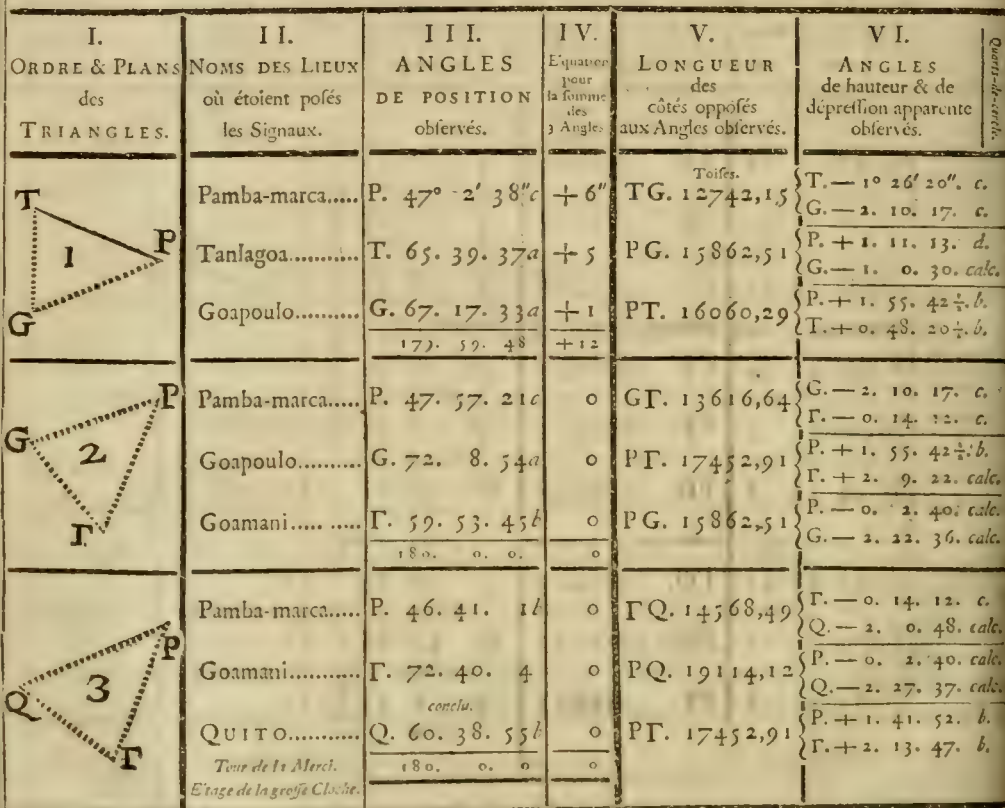 I.
ORDRE & PLANS
des
TRIANGLES.
II.
NOMS DES LIEUX
où étoient posés
les Signaux.
III.
ANGLES
DE POSITION
observés.
IV.
Equation
pour
la somme
des
3 Angles.
V.
LONGUEUR
des
côtés opposés
aux Angles observés.
VI.
ANGLES
de hauteur & de
dépression apparente
observés.
Quarts-de-cercle.
T
P
1
G
Pamba-marca..... P. 47° 2' 38"c +6" Toises. TG. 12742,15 T. — 1° 26' 20". c.
G. — 2. 10. 17. c.
Tanlagoa........... T. 65. 39. 37a +5 PG. 15862,51 P. + 1. 11. 13. d.
G. — 1. 0. 30. calc.
Goapoulo.......... G. 67. 17. 33a +1 PT. 16060,29 P. + 1. 55. 42½. b.
T. + 0. 48. 20½. b.
179. 59. 48 +12
P
G
2
Γ
Pamba-marca..... P. 47. 57. 21c 0 GΓ. 13616,64 G. — 2. 10. 17. c.
Γ. — 0. 14. 12. c.
Goapoulo.......... G. 72. 8. 54a 0 PΓ. 17452,91 P. + 1. 55. 42½. b.
Γ. + 2. 9. 22. calc.
Goamani..... ..... Γ. 59. 53. 45b 0 PG. 15862,51 P. — 0. 2. 40. calc.
G. — 2. 22. 36. calc.
180. 0. 0. 0
P
3
Q
Γ
Pamba-marca..... P. 46. 41. 1b 0 ΓQ. 14568,49 Γ. — 0. 14. 12. c.
Q. — 2. 0. 48. calc.
Goamani........... Γ. 72. 40. 4 0 PQ. 19114,12 P. — 0. 2. 40. calc.
Q. — 2. 27. 37. calc.
conclu.
QUITO........... Q. 60. 38. 55b 0 PΓ. 17452,91 P. + 1. 41. 52. b.
Γ. + 2. 13. 47. b.
Tour de la Merci. 180. 0. 0 0
Etage de la grosse Cloche.